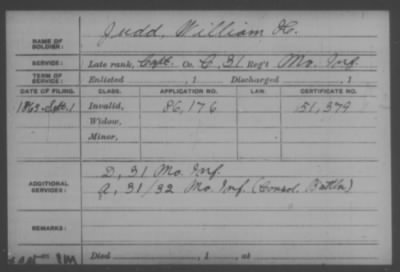 NAME OF SOLDIER: Judd, William H.
SERVICE: Late rank, Capt. Co. C, 31 Reg't Mo. Inf.
TERM OF SERVICE: Enlisted , 1 Discharged , 1
DATE OF FILING. CLASS. APPLICATION NO. LAW. CERTIFICATE NO.
1863-Sept. 1 Invalid, 86,176 51,379
Widow,
Minor,
D, 31 Mo. Inf.
ADDITIONAL SERVICES: A, 31/32 Mo. Inf. (Consol. Battln)
REMARKS:
Died , 1 , at